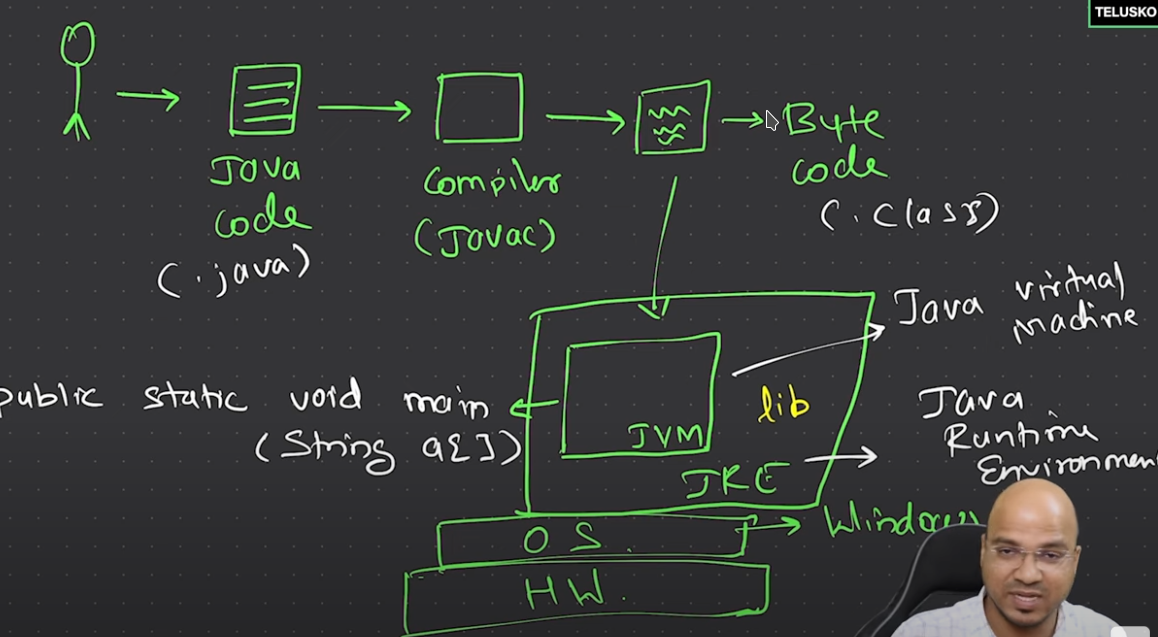 TELUSKO
Java
code
(.java)
Compiler
(Javac)
Byte
code
(.class)
Java virtual
machine
public static void main
(String a[])
lib
JVM
JRE
Java
Runtime
Environmen
OS.
Windows
HW.